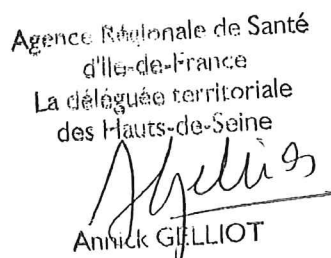 Agence Régionale de Santé
d'Ile-de-France
La déléguée territoriale
des Hauts-de-Seine
AGelliot
Annick GELLIOT